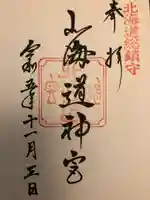 北海道総鎮守
奉拝
北海道神宮
令和五年十一月三日